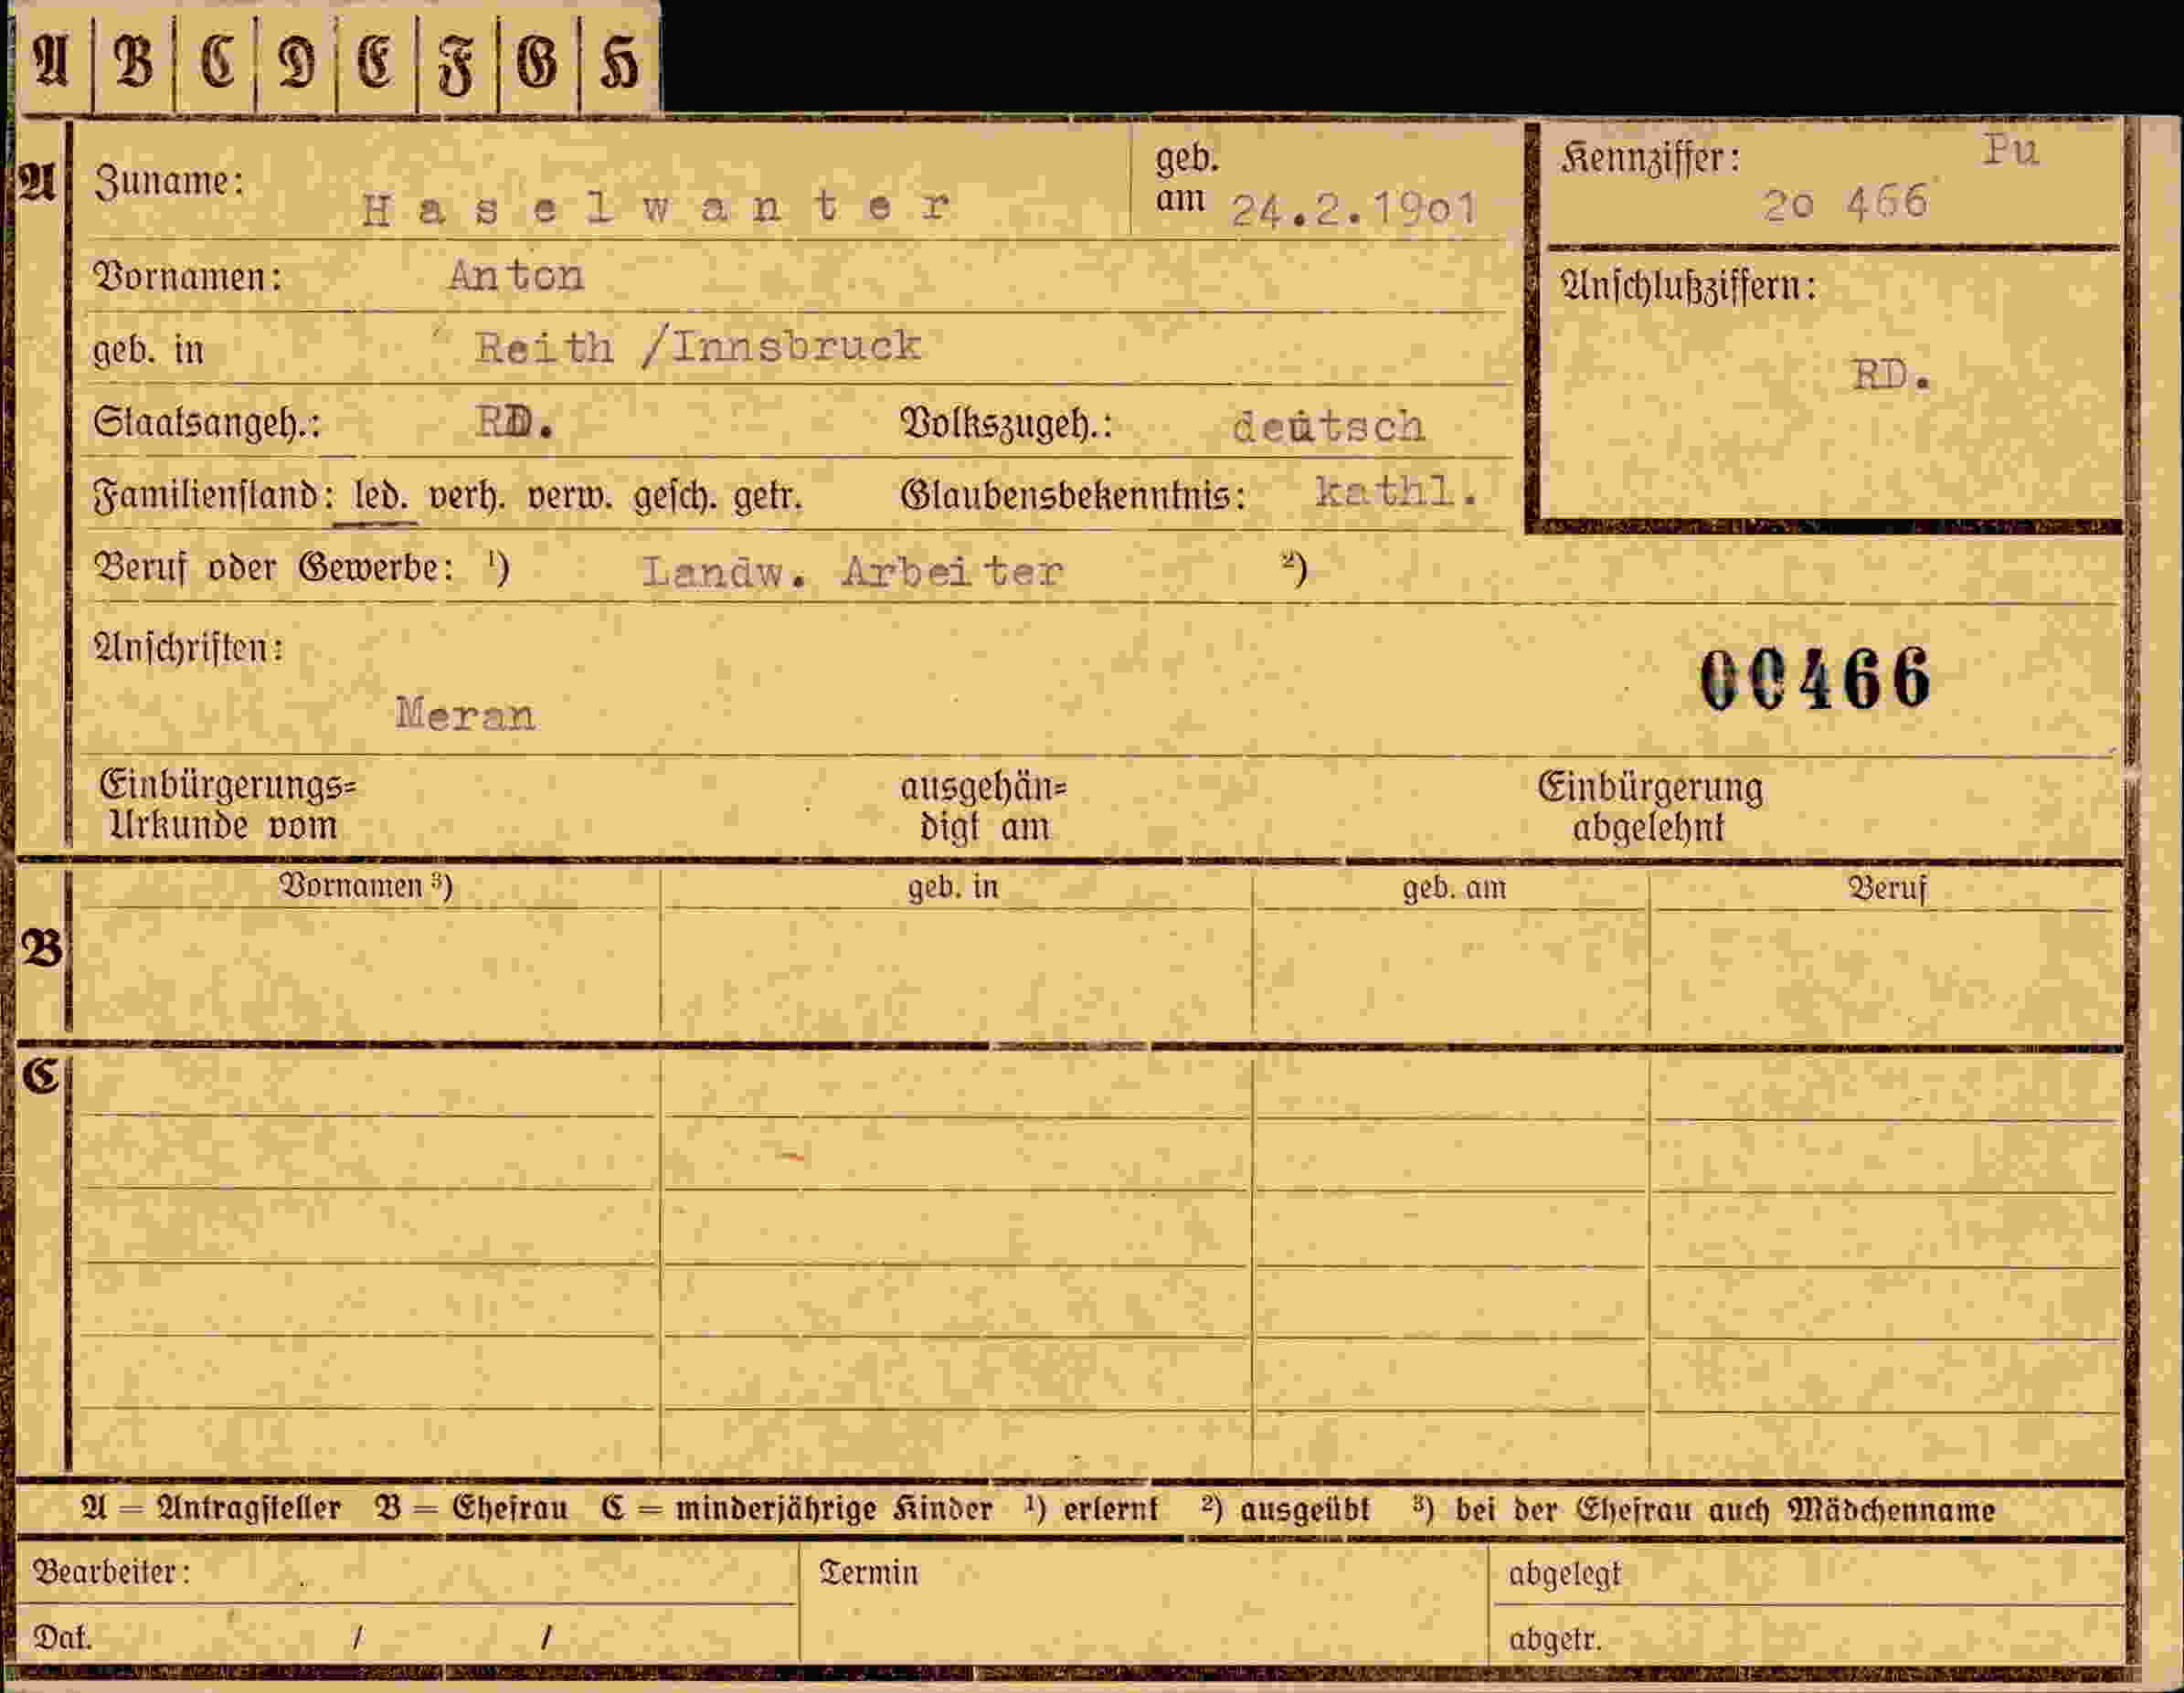 A B C D E F G H
A Zuname: Haselwanter geb. am 24.2.19o1 Kennziffer: Pu 2o 466
Vornamen: Anton
Anschlußziffern: RD.
geb. in Reith /Innsbruck
Staatsangeh.: RD. Volkszugeh.: deutsch
Familienstand: led. verh. verw. gesch. getr. Glaubensbekenntnis: kathl.
Beruf oder Gewerbe: ¹) Landw. Arbeiter ²)
Anschriften:
00466
Meran
Einbürgerungs= ausgehän= Einbürgerung
Urkunde vom digt am abgelehnt
Vornamen ³) geb. in geb. am Beruf
B
C
A = Antragsteller B = Ehefrau C = minderjährige Kinder ¹) erlernt ²) ausgeübt ³) bei der Ehefrau auch Mädchenname
Bearbeiter: Termin abgelegt
Dat. / / abgetr.